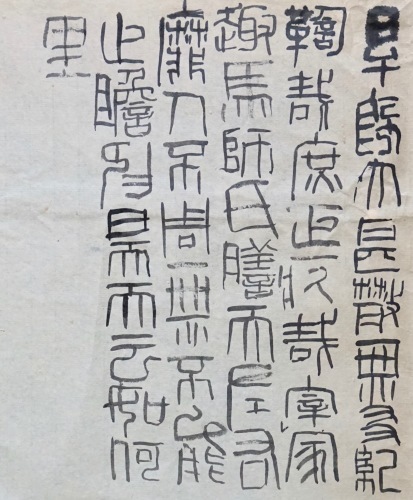 旱既大甚散無友紀
鞫哉庶正疚哉宰冢
趣馬師氏膳夫左右
靡人不周無不能
止瞻卬昊天云如何
里